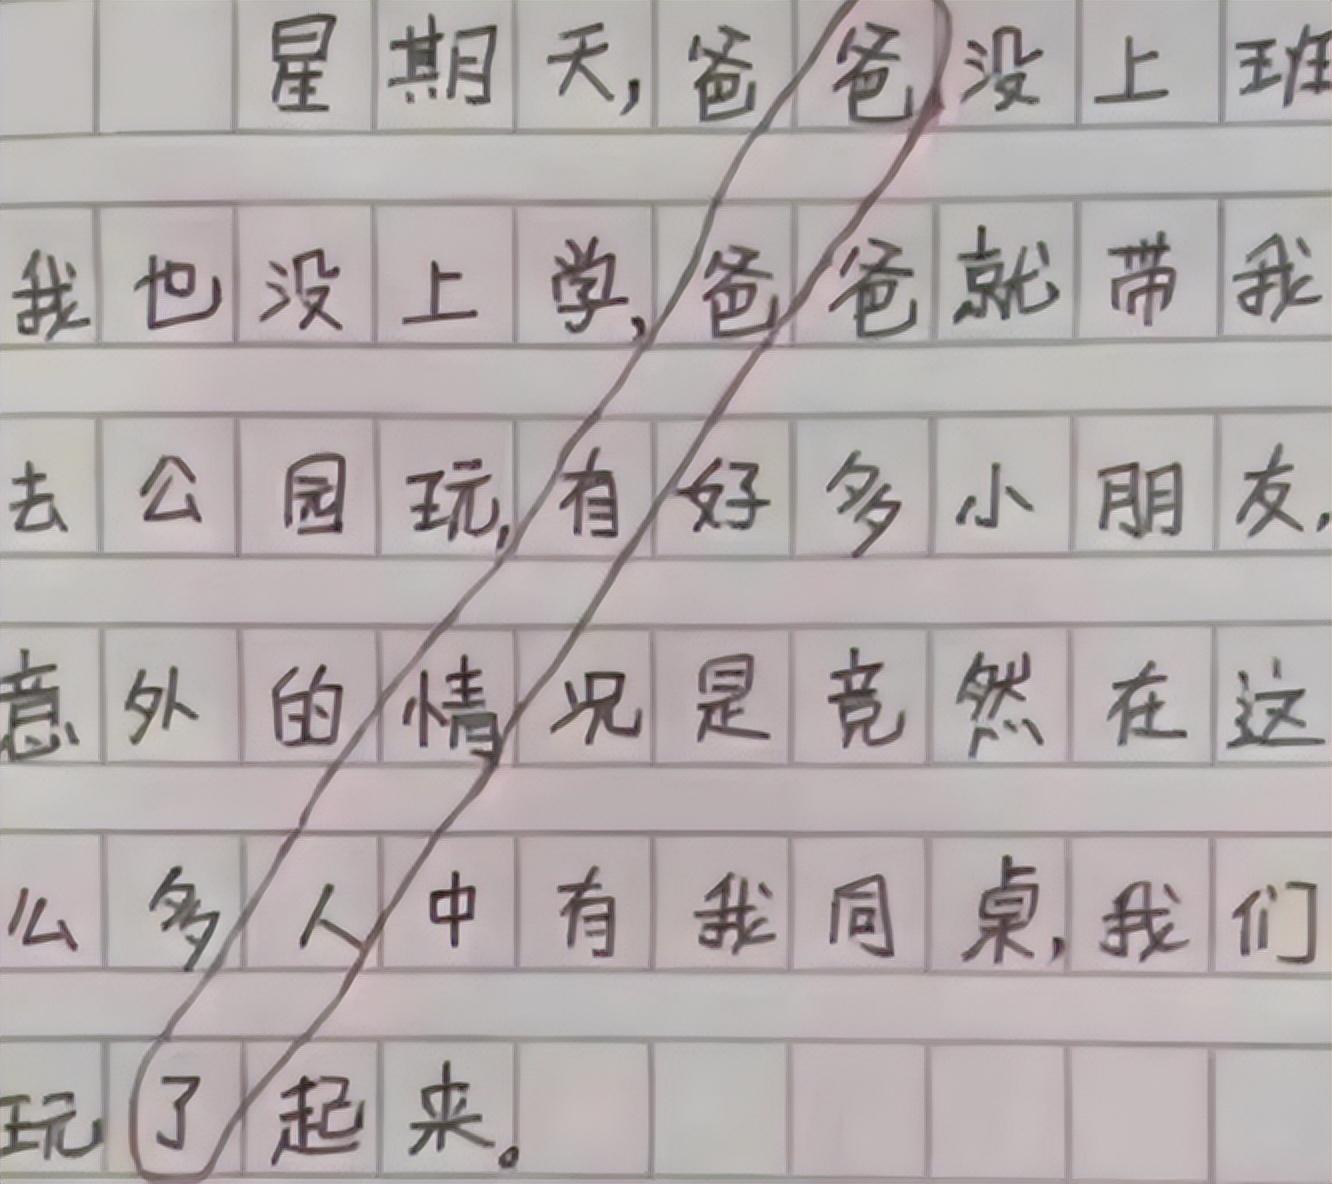 星期天,爸爸没上班
我也没上学,爸爸就带我
去公园玩,有好多小朋友,
意外的情况是竟然在这
么多人中有我同桌,我们
玩了起来。